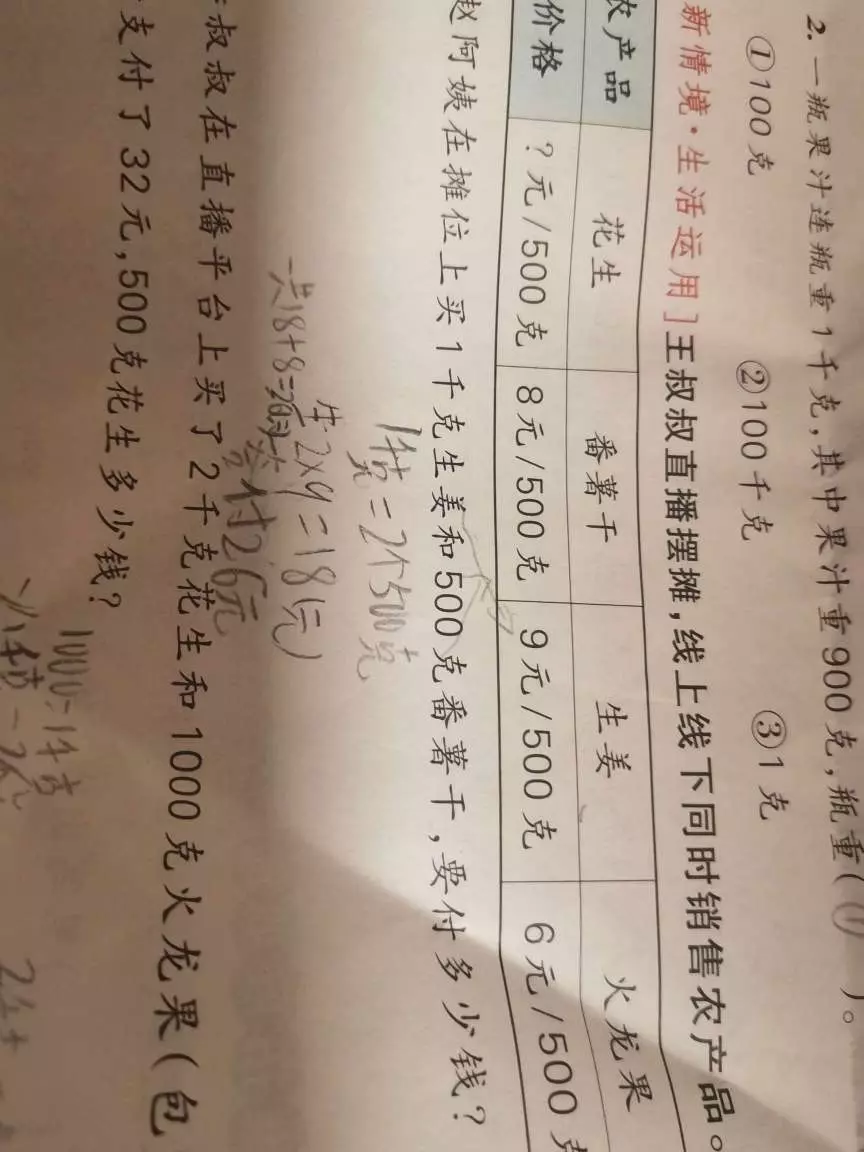 2. 一瓶果汁连瓶重1千克,其中果汁重900克,瓶重(① )。
①100克 ②100千克 ③1克
新情境·生活运用]王叔叔直播摆摊,线上线下同时销售农产品。
农产品 花生 番薯干 生姜 火龙果
价格 ?元/500克 8元/500克 9元/500克 6元/500克
赵阿姨在摊位上买1千克生姜和500克番薯干,要付多少钱?
1千克=2个500克
生:2×9=18(元)
一共18+8=26元
付26元
叔叔在直播平台上买了2千克花生和1000克火龙果(包
支付了32元,500克花生多少钱?
1000=1千克